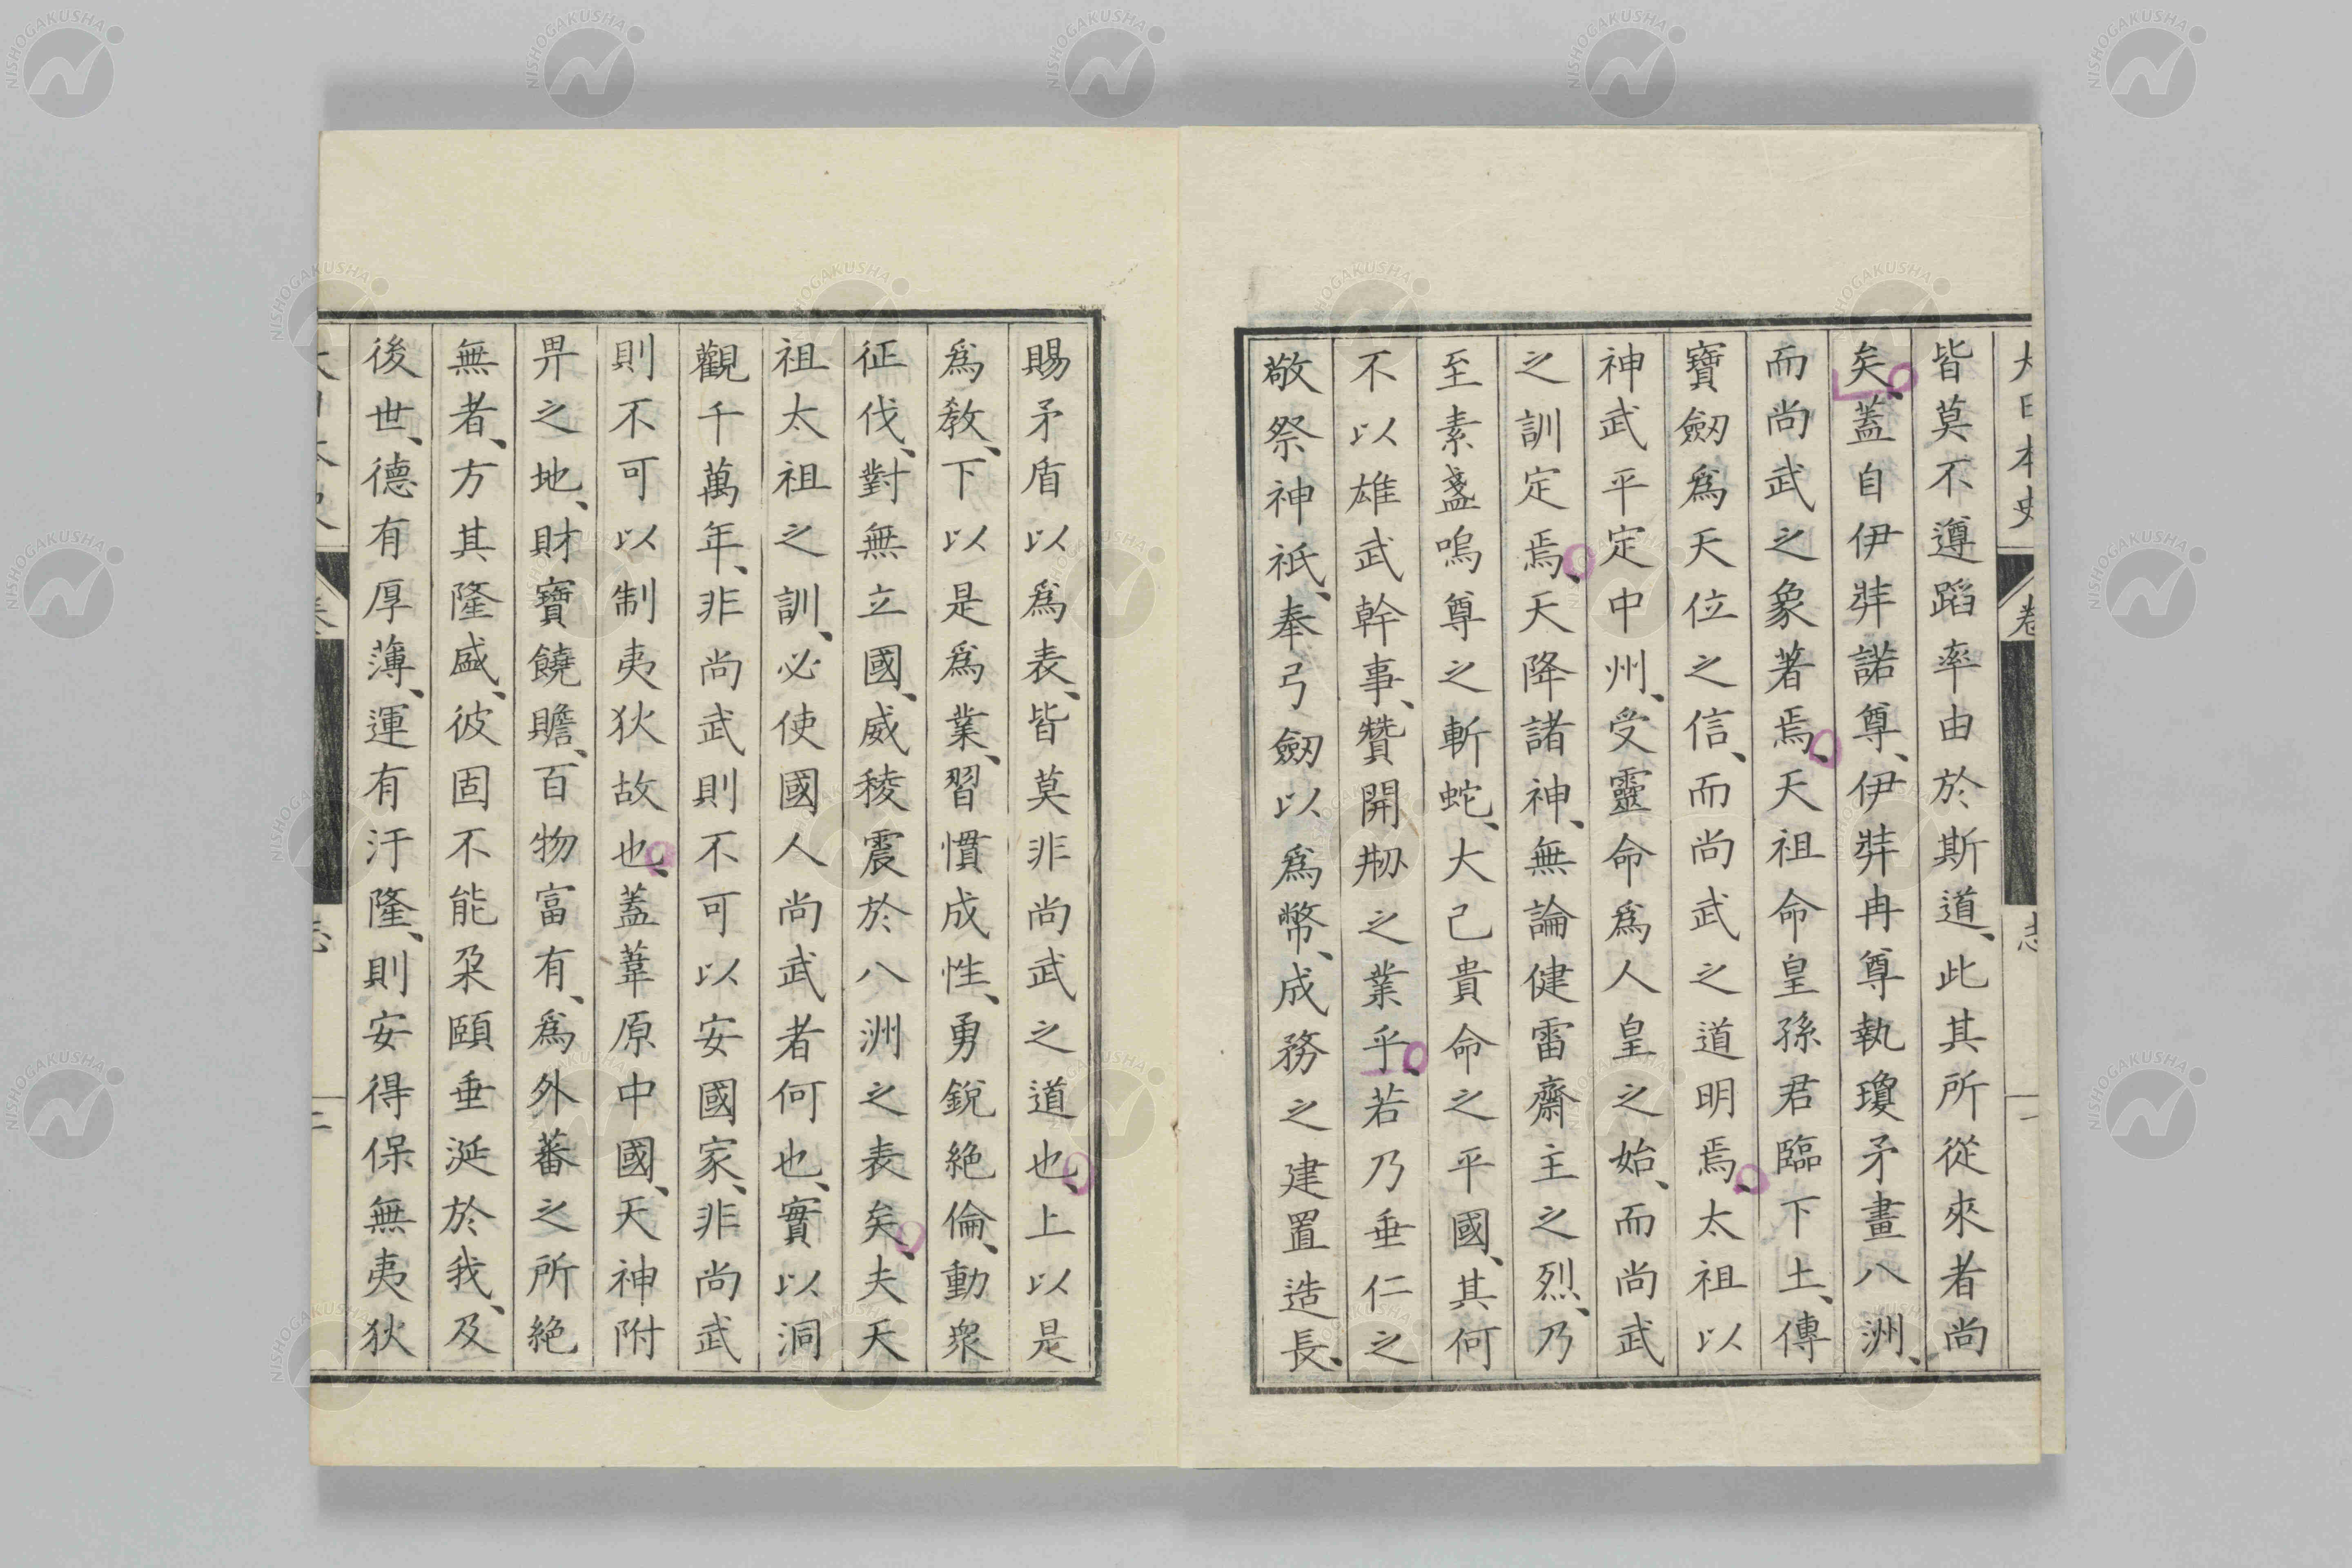 大日本史 卷 志 一
皆莫不遵蹈率由於斯道、此其所從來者尚
矣、蓋自伊弉諾尊、伊弉冉尊執瓊矛畫八洲、
而尚武之象著焉、天祖命皇孫君臨下土、傳
寶劒爲天位之信、而尚武之道明焉、太祖以
神武平定中州、受靈命爲人皇之始、而尚武
之訓定焉、天降諸神、無論健雷齋主之烈、乃
至素盞嗚尊之斬蛇、大己貴命之平國、其何
不以雄武幹事、贊開刱之業乎、若乃垂仁之
敬祭神祇、奉弓劒以爲幣、成務之建置造長、
賜矛盾以爲表、皆莫非尚武之道也、上以是
爲敎、下以是爲業、習慣成性、勇銳絶倫、動衆
征伐、對無立國、威稜震於八洲之表矣、夫天
祖太祖之訓、必使國人尚武者何也、實以洞
觀千萬年、非尚武則不可以安國家、非尚武
則不可以制夷狄故也、蓋葦原中國、天神附
畀之地、財寶饒贍、百物富有、爲外蕃之所絶
無者、方其隆盛、彼固不能朶頤垂涎於我、及
後世、德有厚薄、運有汙隆、則安得保無夷狄
NISHOGAKUSHA